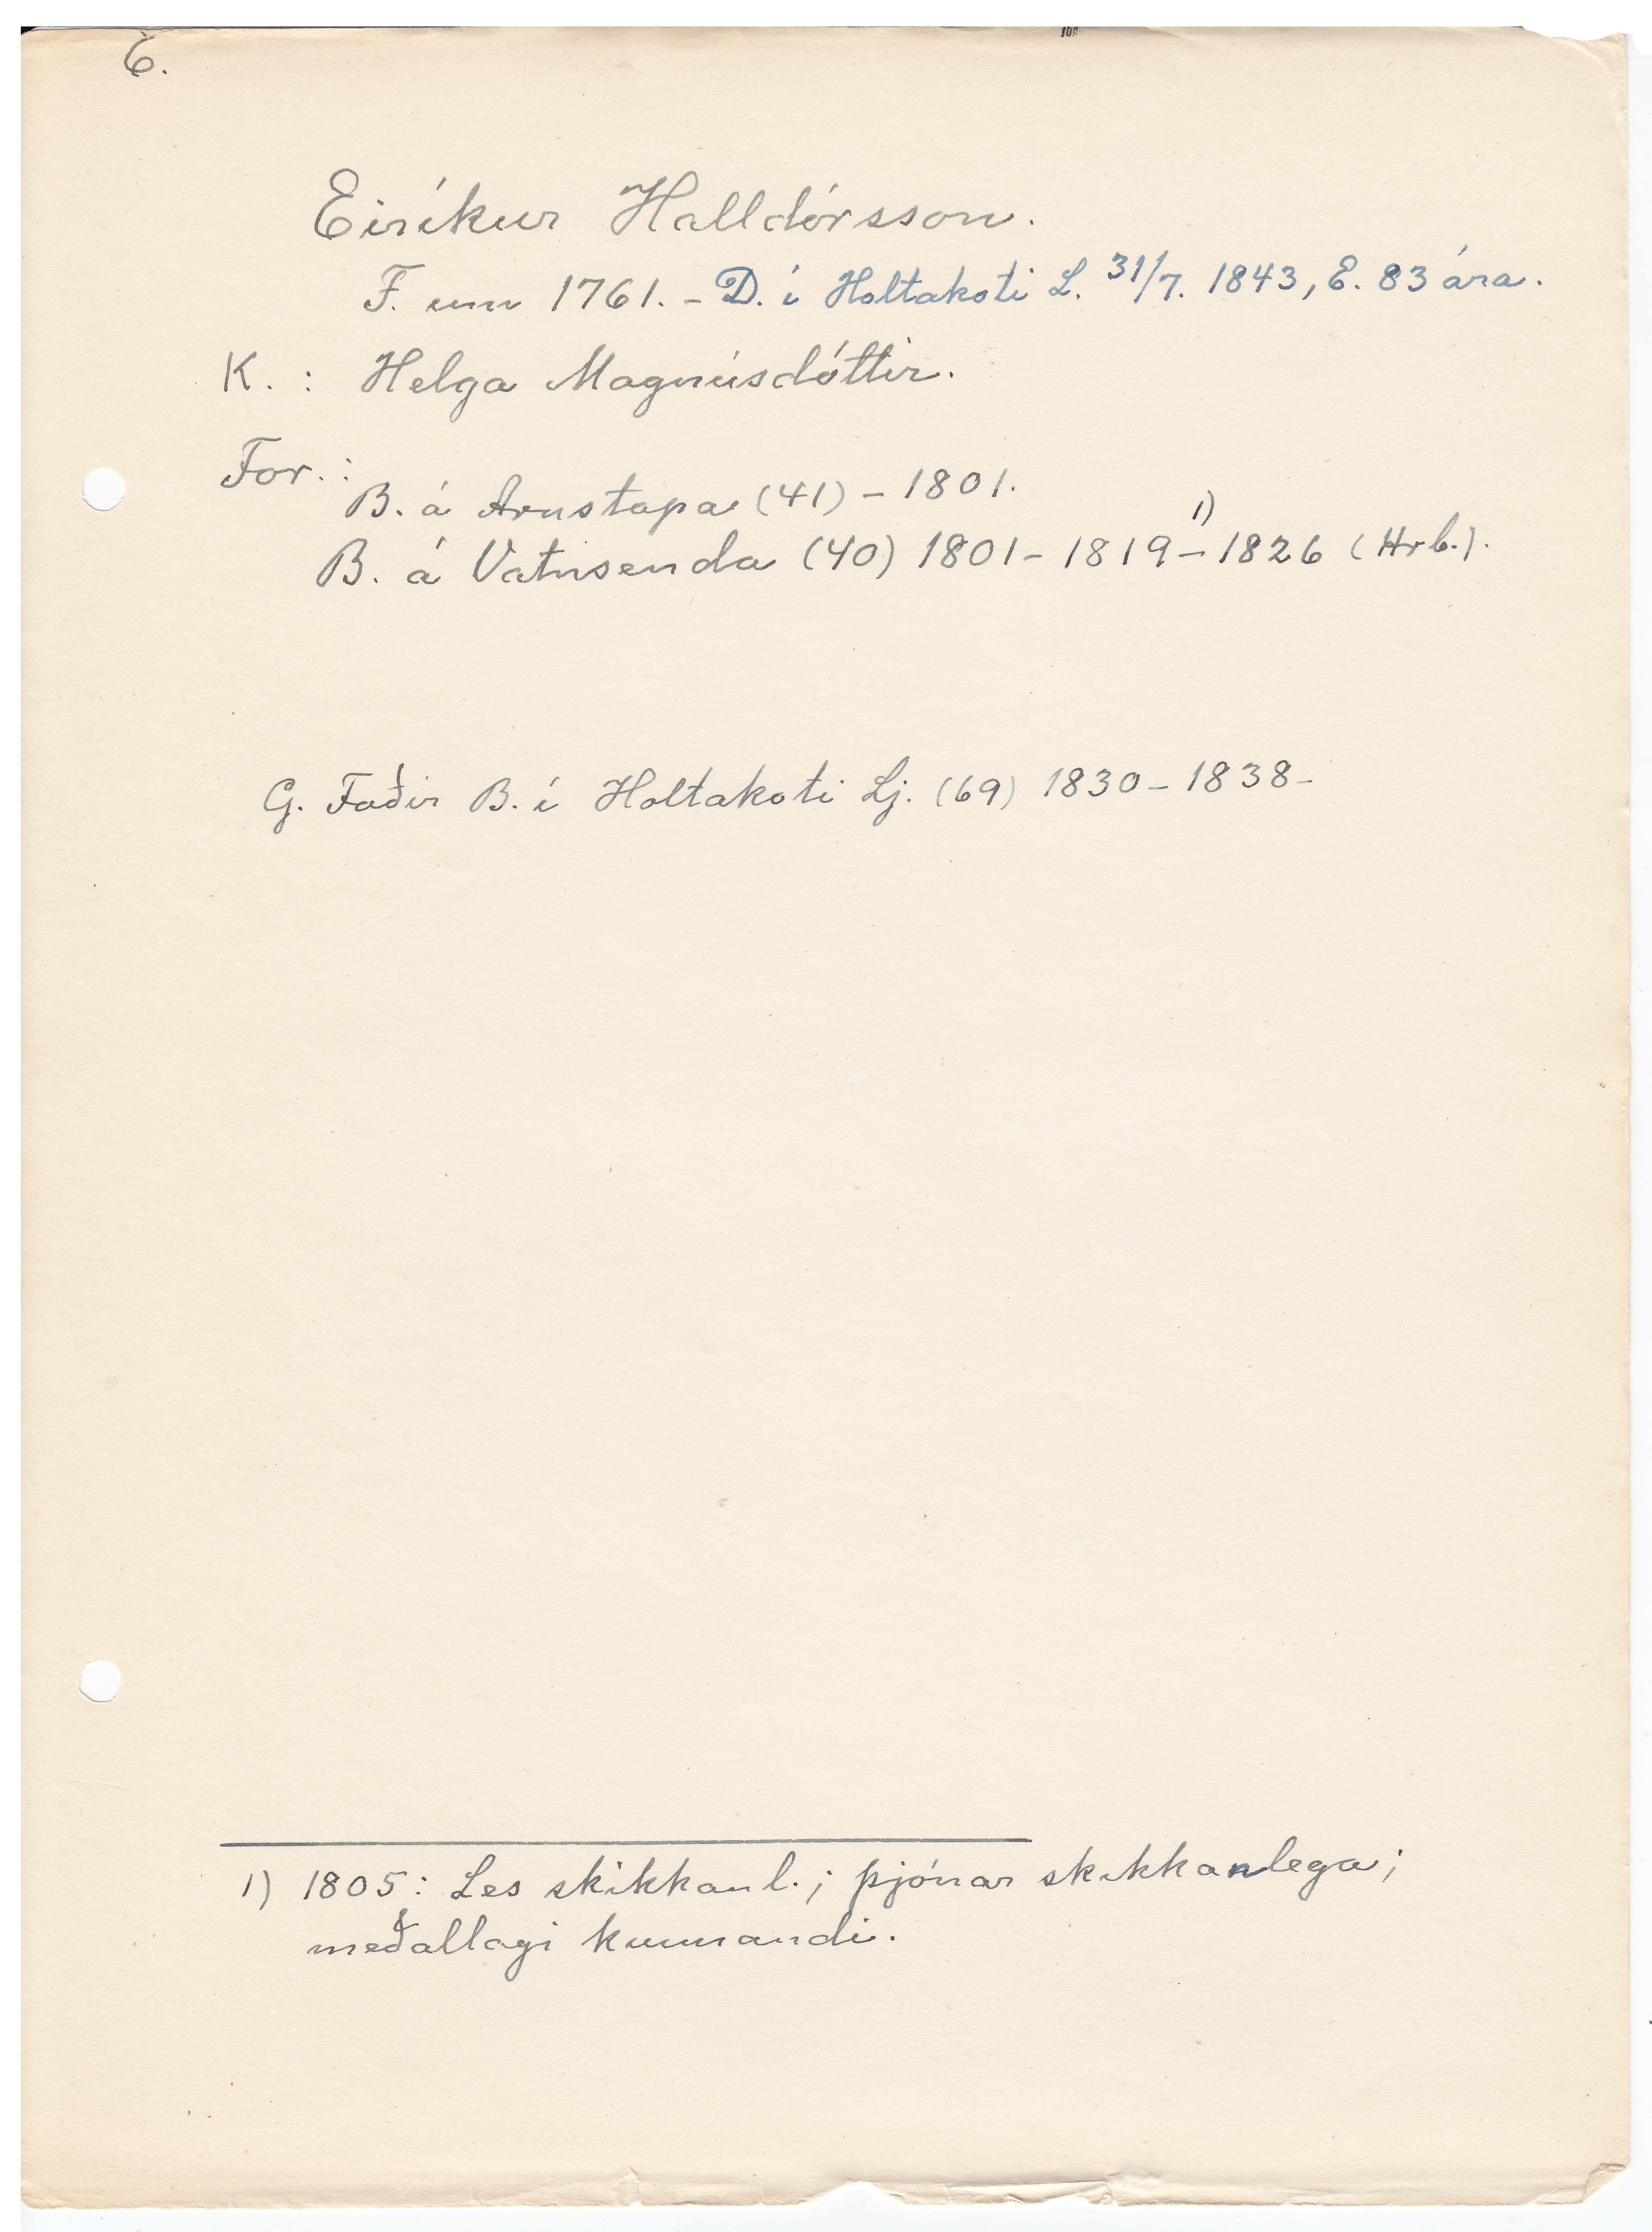 6.
Eiríkur Halldórsson.
F. um 1761. - D. í Holtakoti L. 31/7. 1843, E. 83 ára.
K. : Helga Magnúsdóttir.
For. :
B. á Arnstapa (41) - 1801.
B. á Vatnsenda (40) 1801 - 1819 -¹⁾ 1826 (Hrb.).
G. Faðir B. í Holtakoti Lj. (69) 1830 - 1838 -
1) 1805: Les skikkanl.; þjónar skikkanlega;
meðallagi kunnandi.